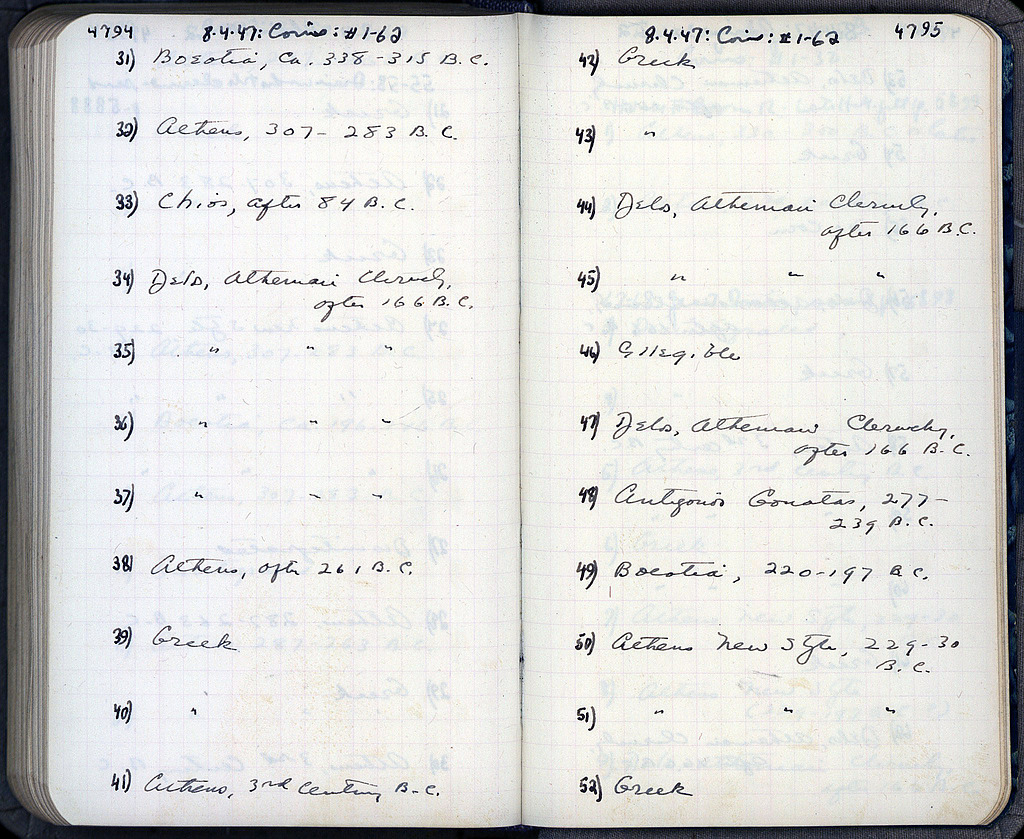 4794
8.4.47: Coins: #1-62
31) Boeotia, Ca. 338-315 B.C.
32) Athens, 307-283 B.C.
33) Chios, after 84 B.C.
34) Delos, Athenian Cleruchy,
after 166 B.C.
35) " " "
36) " " "
37) " " "
38) Athens, after 261 B.C.
39) Greek
40) "
41) Athens, 3rd Century B.C.
8.4.47: Coins: #1-62
4795
42) Greek
43) "
44) Delos, Athenian Cleruchy,
after 166 B.C.
45) " " "
46) Illegible
47) Delos, Athenian Cleruchy,
after 166 B.C.
48) Antigonos Gonatas, 277-
239 B.C.
49) Boeotia, 220-197 B.C.
50) Athens New Style, 229-30
B.C.
51) " " "
52) Greek